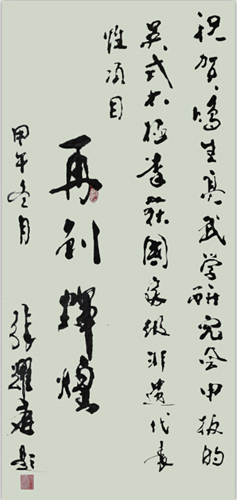 祝贺鸿生真武学研究会申报的
吴式太极拳获国家级非遗代表
性项目
再创辉煌
甲午冬月
张耀庭题